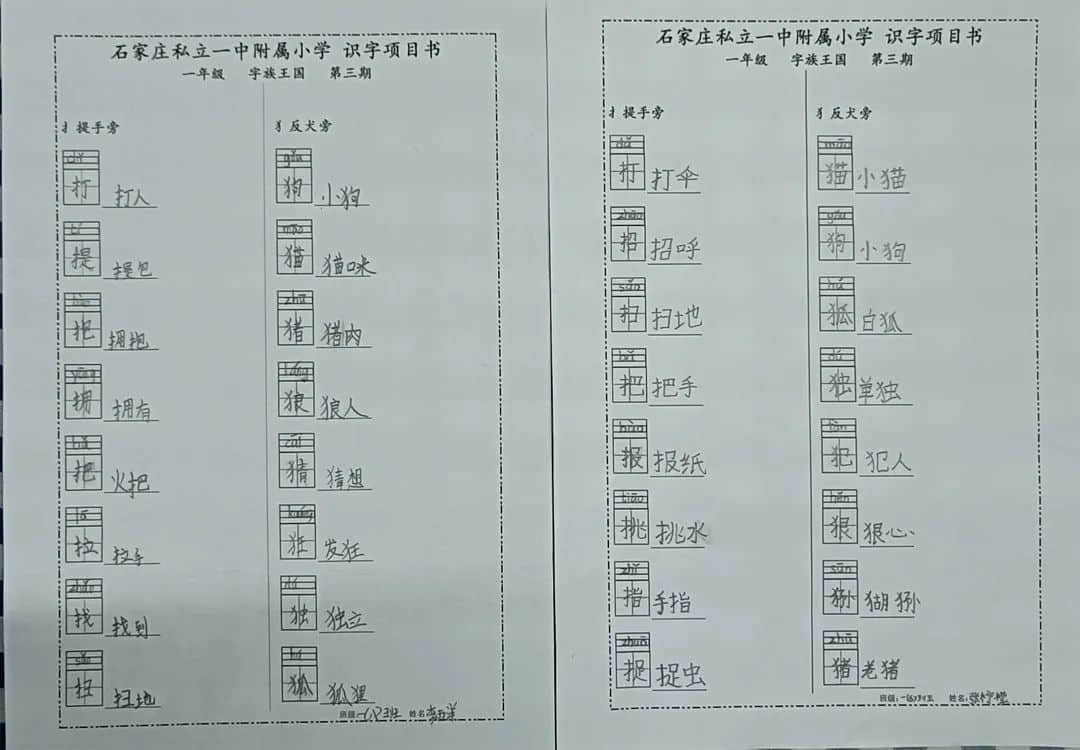 石家庄私立一中附属小学 识字项目书
一年级 字族王国 第三期
扌提手旁 犭反犬旁
dǎ gǒu
打 打人 狗 小狗
tí māo
提 提包 猫 猫咪
zhū
抱 拥抱 猪 猪肉
yōng láng
拥 拥有 狼 狼人
bǎ cāi
把 火把 猜 猜想
lā kuáng
拉 拉手 狂 发狂
zhǎo dú
找 找到 独 独立
sǎo hú
扫 扫地 狐 狐狸
班级: 姓名:
石家庄私立一中附属小学 识字项目书
一年级 字族王国 第三期
扌提手旁 犭反犬旁
dǎ māo
打 打伞 猫 小猫
zhāo gǒu
招 招呼 狗 小狗
sǎo hú
扫 扫地 狐 白狐
bǎ dú
把 把手 独 单独
bào
报 报纸 犯 犯人
tiāo hěn
挑 挑水 狠 狠心
zhǐ sūn
指 手指 狲 猢狲
zhuō zhū
捉 捉虫 猪 老猪
班级: 姓名: